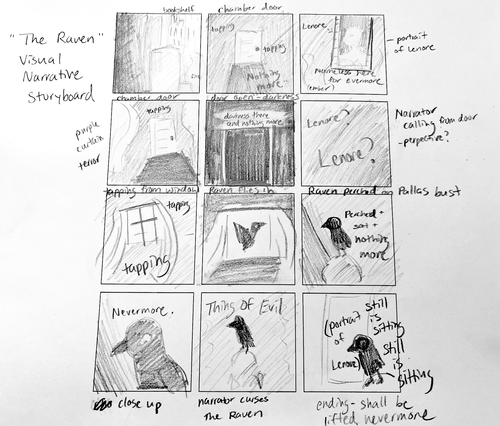 "The Raven"
Visual
Narrative
Storyboard
bookshelf
chamber door
tapping
tapping
Nothing
more"
Lenore
Nameless here
for evermore
(ember)
portrait
of Lenore
chamber door
tapping
purple
curtain
terror
door open - darkness
darkness there
and nothing more
Lenore?
Lenore?
Narrator
calling from door
- perspective?
tapping from window
tapping
tapping
Raven flies in
Raven perched on Pallas bust
Perched +
sat +
nothing
more
Nevermore.
close up
Thing of Evil
narrator curses
The Raven
(portrait
of
Lenore)
still
is
sitting
still
is
sitting
ending - shall be
lifted nevermore